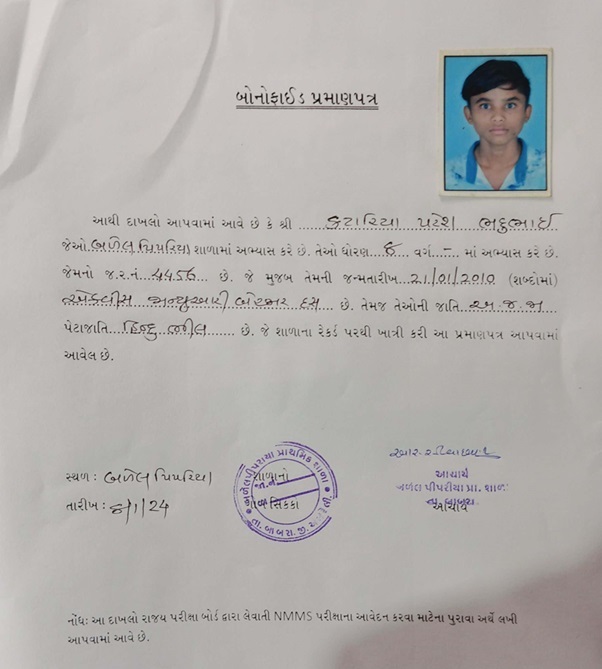 બોનોફાઈડ પ્રમાણપત્ર
આથી દાખલો આપવામાં આવે છે કે શ્રી કટારિયા પરેશ ભદુભાઈ
જેઓ બળેલ પિપરિયા શાળામાં અભ્યાસ કરે છે. તેઓ ધોરણ ૮ વર્ગ - માં અભ્યાસ કરે છે.
જેમનો જ.ર.નં ૫૪૫૬ છે. જે મુજબ તેમની જન્મતારીખ 21/01/2010 (શબ્દોમાં)
એકવીસ જાન્યુઆરી બેહજાર દસ છે. તેમજ તેઓની જાતિ અ.જ.જા
પેટાજાતિ હિન્દુ ભીલ છે. જે શાળાના રેકર્ડ પરથી ખાત્રી કરી આ પ્રમાણપત્ર આપવામાં
આવેલ છે.
સ્થળ : બળેલ પિપરિયા
તારીખ : /1/24
શાળાનો
ગોળ સિક્કો
બળેલ પીપરીયા પ્રાથમિક શાળા
તા. બાબરા. જી. અમરેલી
આચાર્ય
બળેલ પીપરીયા પ્રા. શાળા
તા. બાબરા
આચાર્ય
નોંધઃ આ દાખલો રાજ્ય પરીક્ષા બોર્ડ દ્વારા લેવાતી NMMS પરીક્ષાના આવેદન કરવા માટેના પુરાવા અર્થે લખી
આપવામાં આવે છે.